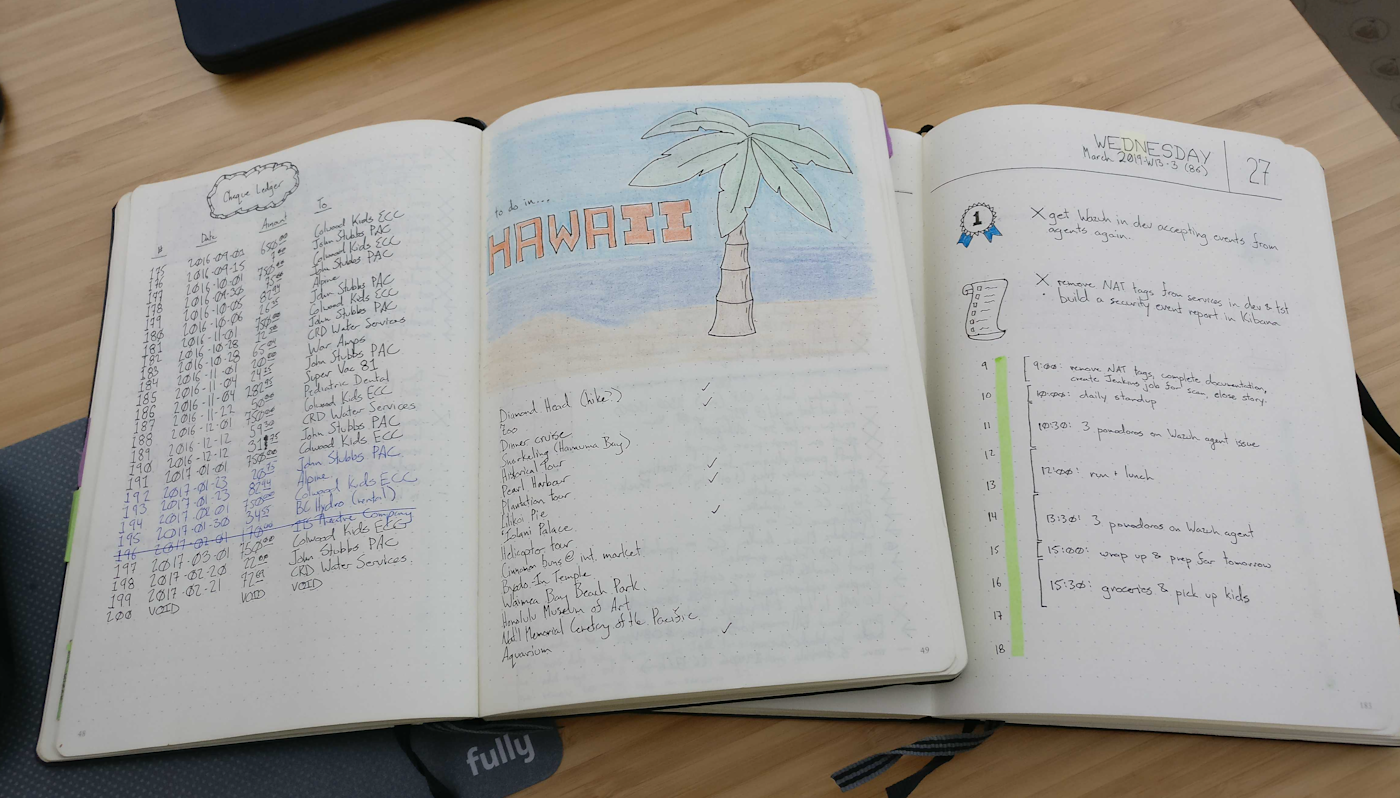 Cheque Ledger
# Date Amount To
175 2016-09-01 650.00 Colwood Kids ECC
176 2016-09-15 John Stubbs PAC
177 2016-10-01 750.00 Colwood Kids ECC
178 2016-09-30 John Stubbs PAC
179 2016-10-05 Alpine
180 2016-10-06 John Stubbs PAC
181 2016-11-01 750.00 Colwood Kids ECC
182 2016-10-28 22.00 John Stubbs PAC
183 2016-10-28 65.01 CRD Water Services
184 2016-11-01 20.00 War Amps
185 2016-11-04 John Stubbs PAC
186 2016-11-04 Super Vac 81
187 2016-11-22 50.00 Pediatric Dental
188 2016-12-01 750.00 Colwood Kids ECC
189 2016-12-12 59.30 CRD Water Services
190 2016-12-12 John Stubbs PAC
191 2017-01-01 750.00 Colwood Kids ECC
192 2017-01-23 20.75 John Stubbs PAC
193 2017-01-23 82.94 Alpine
194 2017-02-01 750.00 Colwood Kids ECC
195 2017-01-30 BC Hydro (rental)
196 2017-02-01 Theatre Company
197 2017-03-01 750.00 Colwood Kids ECC
198 2017-02-20 22.00 John Stubbs PAC
199 2017-02-21 72.01 CRD Water Services
200 VOID VOID VOID
48
to do in...
HAWAII
Diamond Head (hike?) ✓
Zoo ✓
Dinner cruise
Snorkeling (Hanauma Bay)
Historical tour ✓
Pearl Harbour ✓
Plantation tour
Lilikoi Pie ✓
Iolani Palace
Helicopter tour
Cinnamon buns @ int. market
Byodo-In Temple
Waimea Bay Beach Park
Honolulu Museum of Art
Nat'l Memorial Cemetary of the Pacific
Aquarium ✓
49
WEDNESDAY 27
March 2019-W13-3 (86)
1
X get Wazuh in dev accepting events from
agents again..
X remove NAT tags from services in dev & tst
· build a security event report in Kibana
9
10
11
12
13
14
15
16
17
18
9:00: remove NAT tags, complete documentation,
create Jenkins job for scan, close story.
10:00: daily standup
10:30: 3 pomodoros on Wazuh agent issue
12:00: run + lunch
13:30: 3 pomodoros on Wazuh agent
15:00: wrap up & prep for tomorrow
15:30: groceries & pick up kids
fully